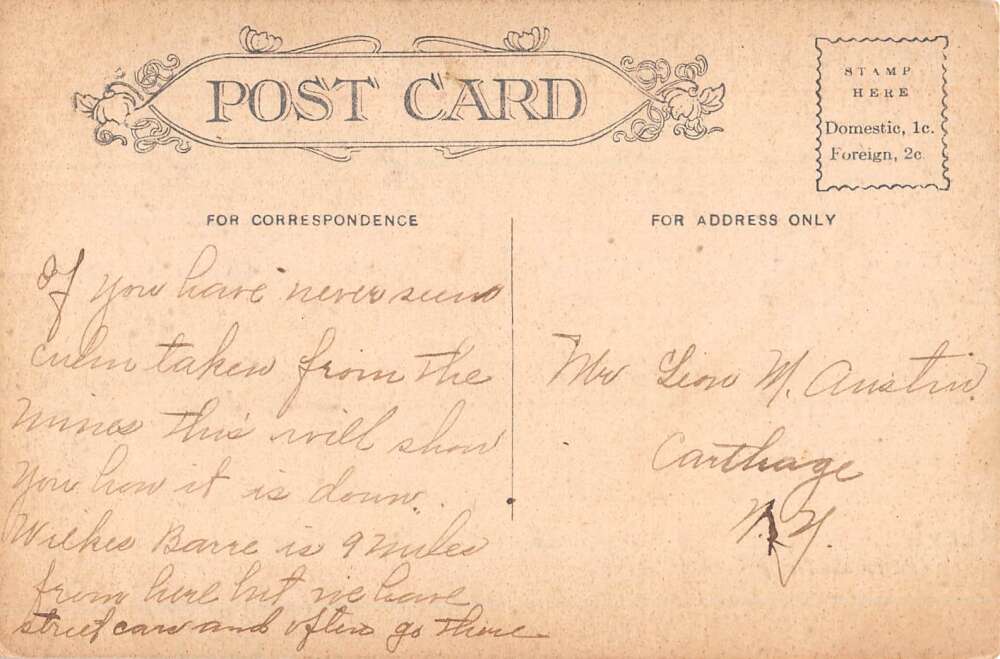 POST CARD
STAMP
HERE
Domestic, 1c.
Foreign, 2c
FOR CORRESPONDENCE
If you have never seen
culm taken from the
mines this will show
you how it is down.
Wilkes Barre is 9 miles
from here but we have
street cars and often go there
FOR ADDRESS ONLY
Mr Leon M. Austin
Carthage
N. Y.